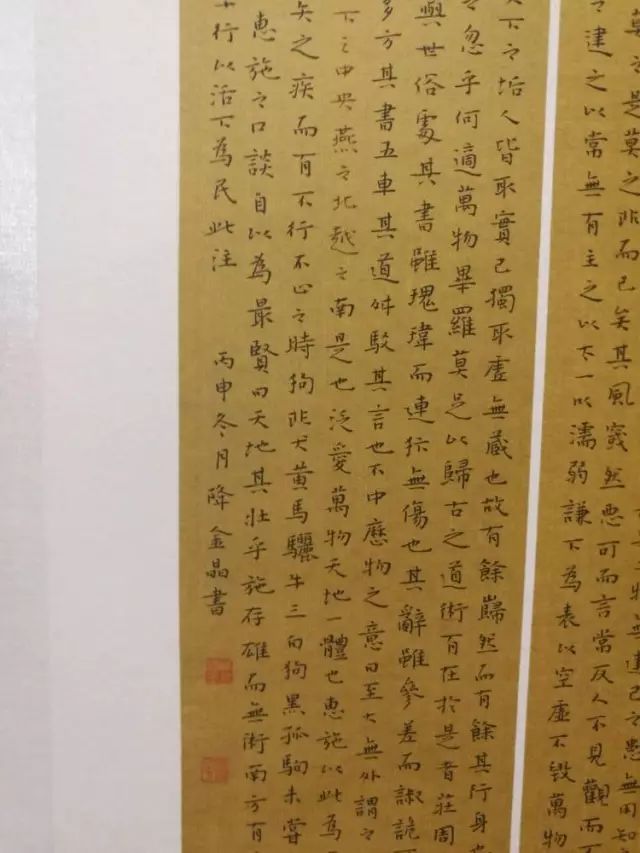 物無建己之患無用知之
莫之是莫之非而已矣其風窢然惡可而言常反人不見觀而
建之以常無有主之以太一以濡弱謙下為表以空虛不毀萬物
天下之垢人皆取實己獨取虛無藏也故有餘巋然而有餘其行身也
忽乎何適萬物畢羅莫足以歸古之道術有在於是者莊周
與世俗處其書雖瑰瑋而連犿無傷也其辭雖參差而諔詭
多方其書五車其道舛駁其言也不中歷物之意曰至大無外謂之
下之中央燕之北越之南是也泛愛萬物天地一體也惠施以此為
矢之疾而有不行不止之時狗非犬黃馬驪牛三白狗黑孤駒未嘗
惠施之口談自以為最賢曰天地其壯乎施存雄而無術南方有
行以活下為民此注 丙申冬月降金晶書